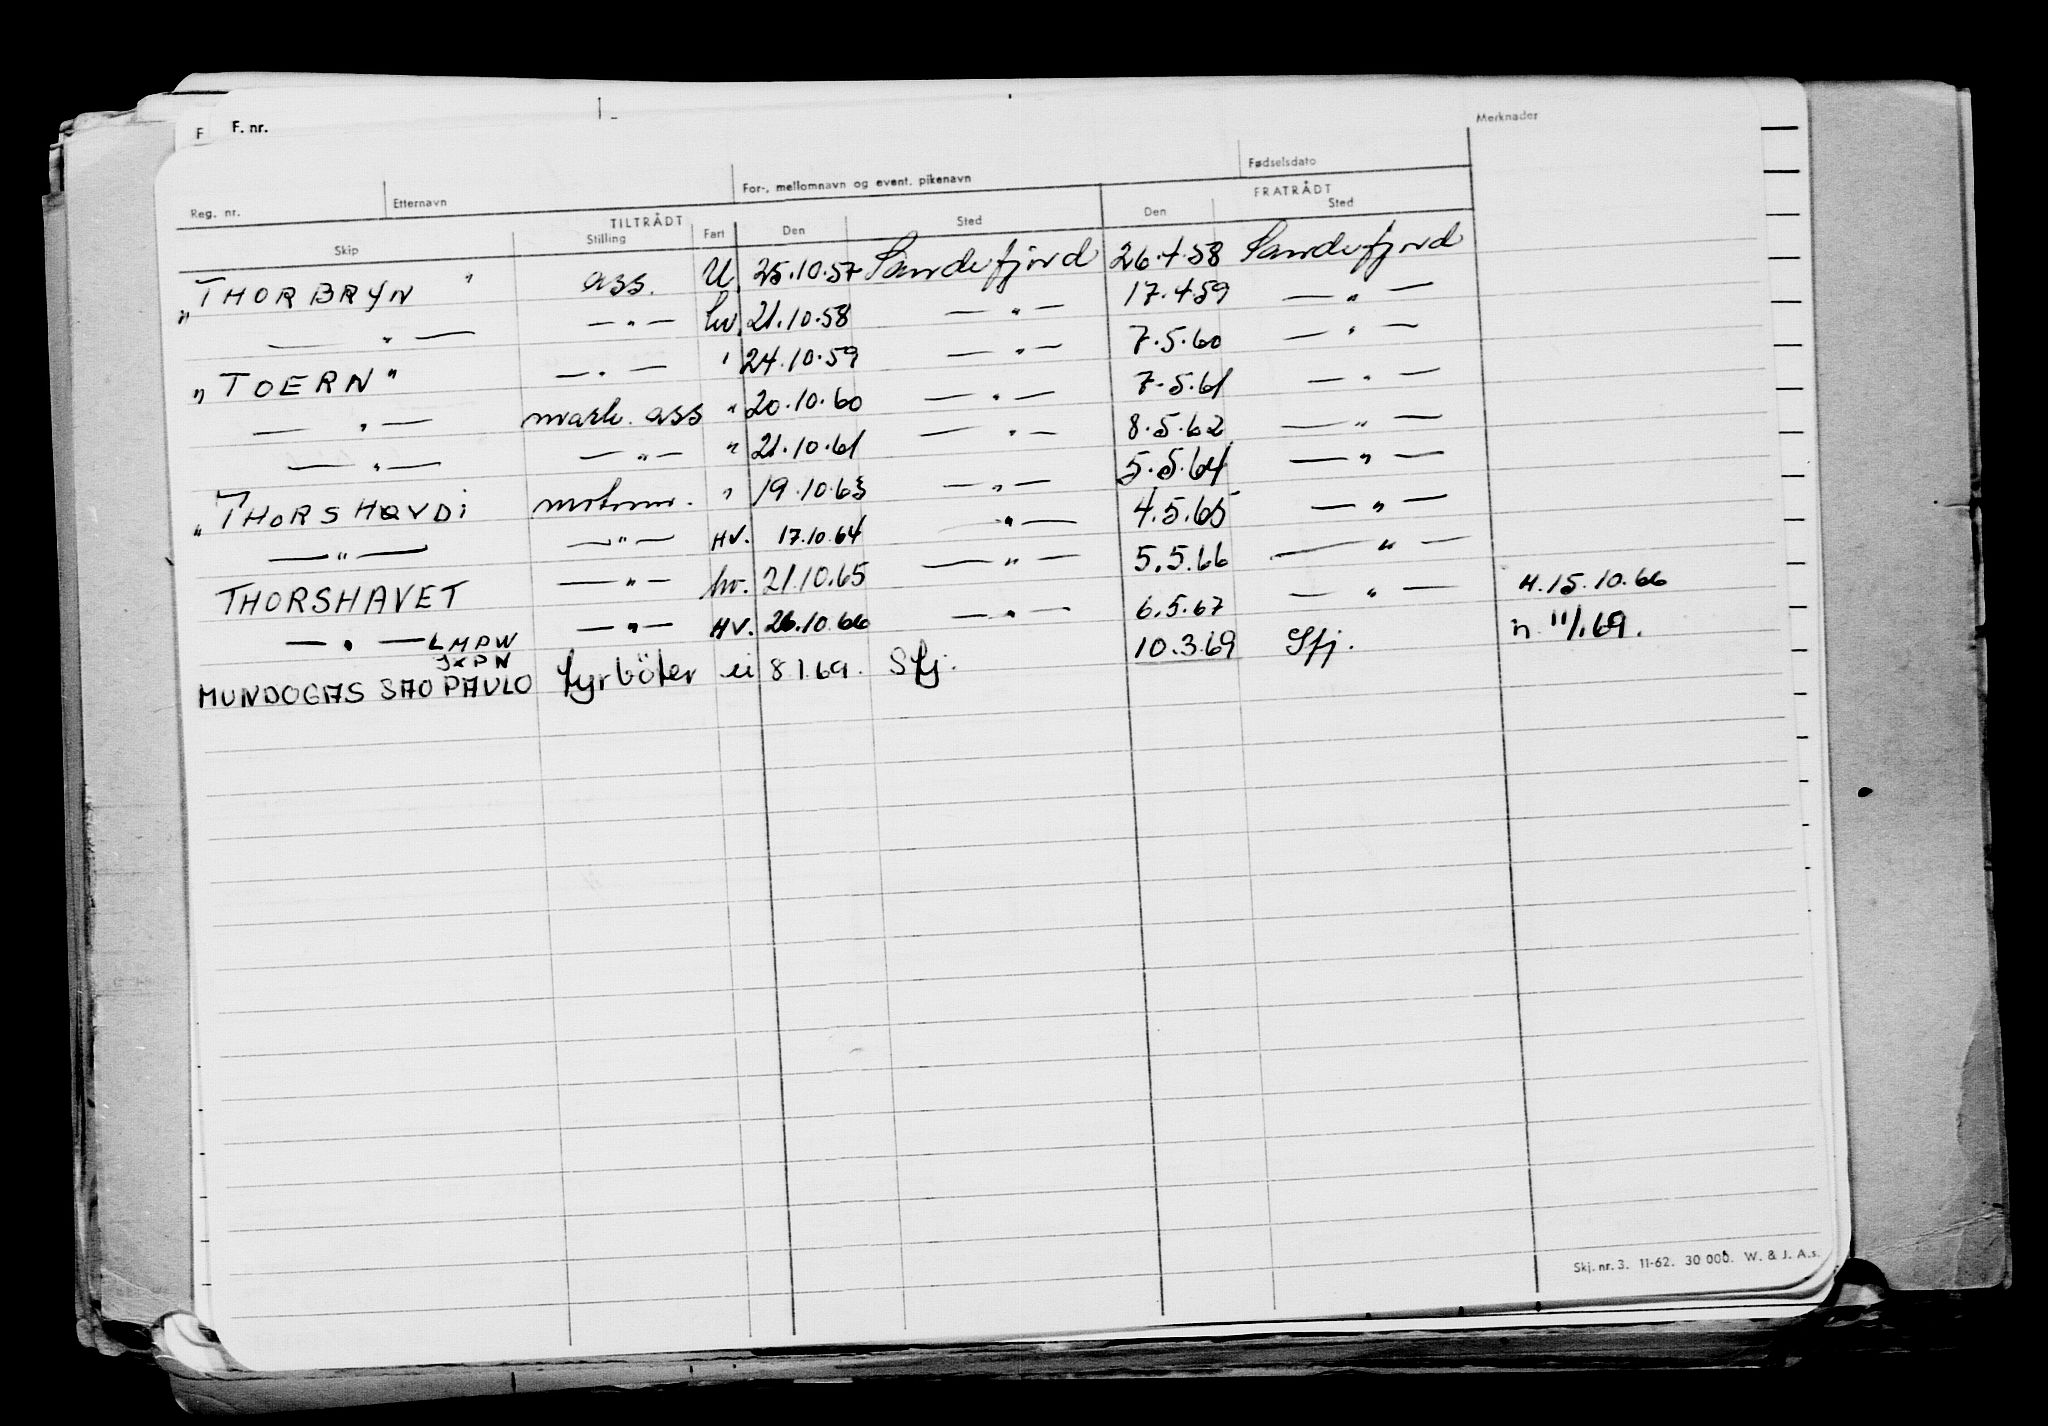 F F. nr.
Merknader
Reg. nr. Etternavn For-, mellomnavn og event. pikenavn Fødselsdato
TILTRÅDT FRATRÅDT
Skip Stilling Fart Den Sted Den Sted
"THORBRYN" ass. U. 25.10.57 Sandefjord 26.4.58 Sandefjord
— " — — " — hv. 21.10.58 — " — 17.4.59 — " —
"TOERN" — " — " 24.10.59 — " — 7.5.60 — " —
— " — mask. ass " 20.10.60 — " — 7.5.61 — " —
— " — — " — " 21.10.61 — " — 8.5.62 — " —
"THORSHØVDI motorm. " 19.10.63 — " — 5.5.64 — " —
— " — — " — HV. 17.10.64 — " — 4.5.65 — " —
THORSHAVET — " — hv. 21.10.65 — " — 5.5.66 — " —
— " — — " — HV. 26.10.66 — " — 6.5.67 — " — H.15.10.66
LMPW
JXPN
MUNDOGAS SAO PAULO fyrböter ui 8.1.69. Sfj. 10.3.69 Sfj. n 11/1.69.
Skj. nr. 3. 11-62. 30 000. W. & J. A.s.